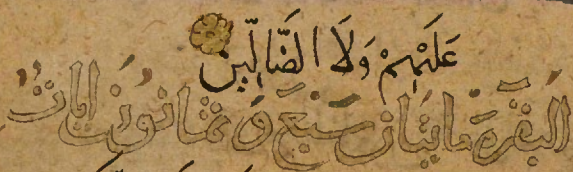 عَلَيْهِمْ وَلَا الضَّالِّينَ
البَقَرَة مايتان سَبْع وَ ثمانون اٰيات